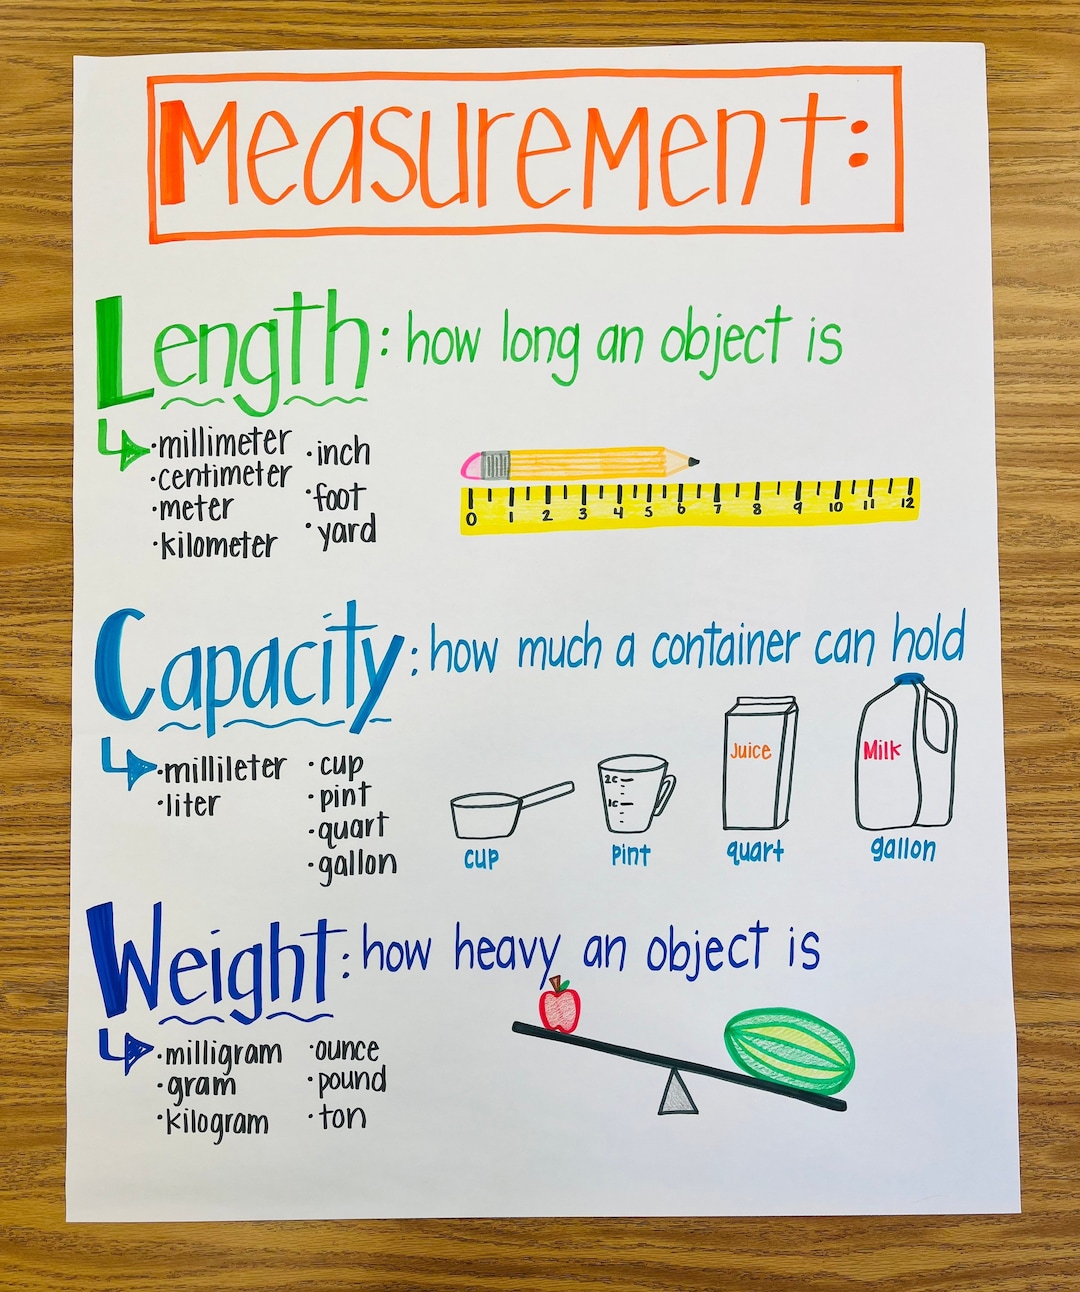 Measurement:
Length: how long an object is
·millimeter
·centimeter
·meter
·kilometer
·inch
·foot
·yard
0 1 2 3 4 5 6 7 8 9 10 11 12
Capacity: how much a container can hold
·millileter
·liter
·cup
·pint
·quart
·gallon
cup
2c
1c
pint
Juice
quart
Milk
gallon
Weight: how heavy an object is
·milligram
·gram
·kilogram
·ounce
·pound
·ton